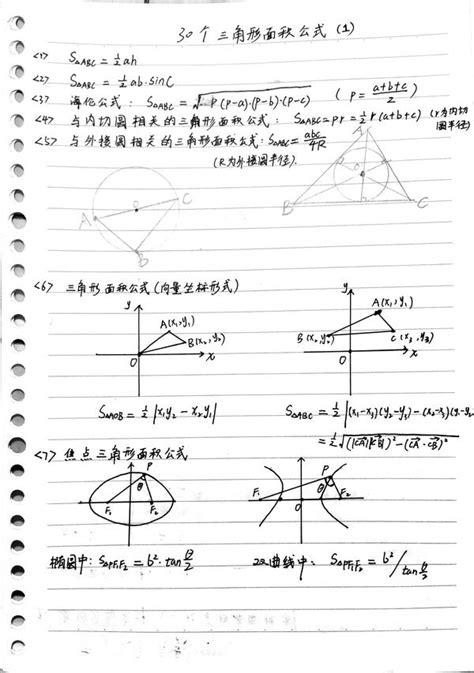 30个三角形面积公式 (1)
<1> S△ABC = ½ah
<2> S△ABC = ½ab·sinC
<3> 海伦公式: S△ABC = √P(P-a)·(P-b)·(P-c) ( P = (a+b+c)/2 )
<4> 与内切圆相关的三角形面积公式: S△ABC = Pr = ½r(a+b+c) (r为内切圆半径)
<5> 与外接圆相关的三角形面积公式: S△ABC = abc/4R
(R为外接圆半径).
A C B
A B C
<6> 三角形面积公式(向量坐标形式)
y A(x₁,y₁) B(x₂,y₂) O x
y A(x₁,y₁) B(x₂,y₂) C(x₃,y₃) O x
S△AOB = ½|x₁y₂ - x₂y₁|
S△ABC = ½|(x₁-x₃)(y₂-y₁) - (x₂-x₃)(y₁-
= ½√(|CA||CB|)² - (CA·CB)²
<7> 焦点三角形面积公式
P θ F₁ F₂
P θ F₁ O F₂
椭圆中: S△PF₁F₂ = b²·tan θ/2
双曲线中: S△PF₁F₂ = b²/tan θ/2